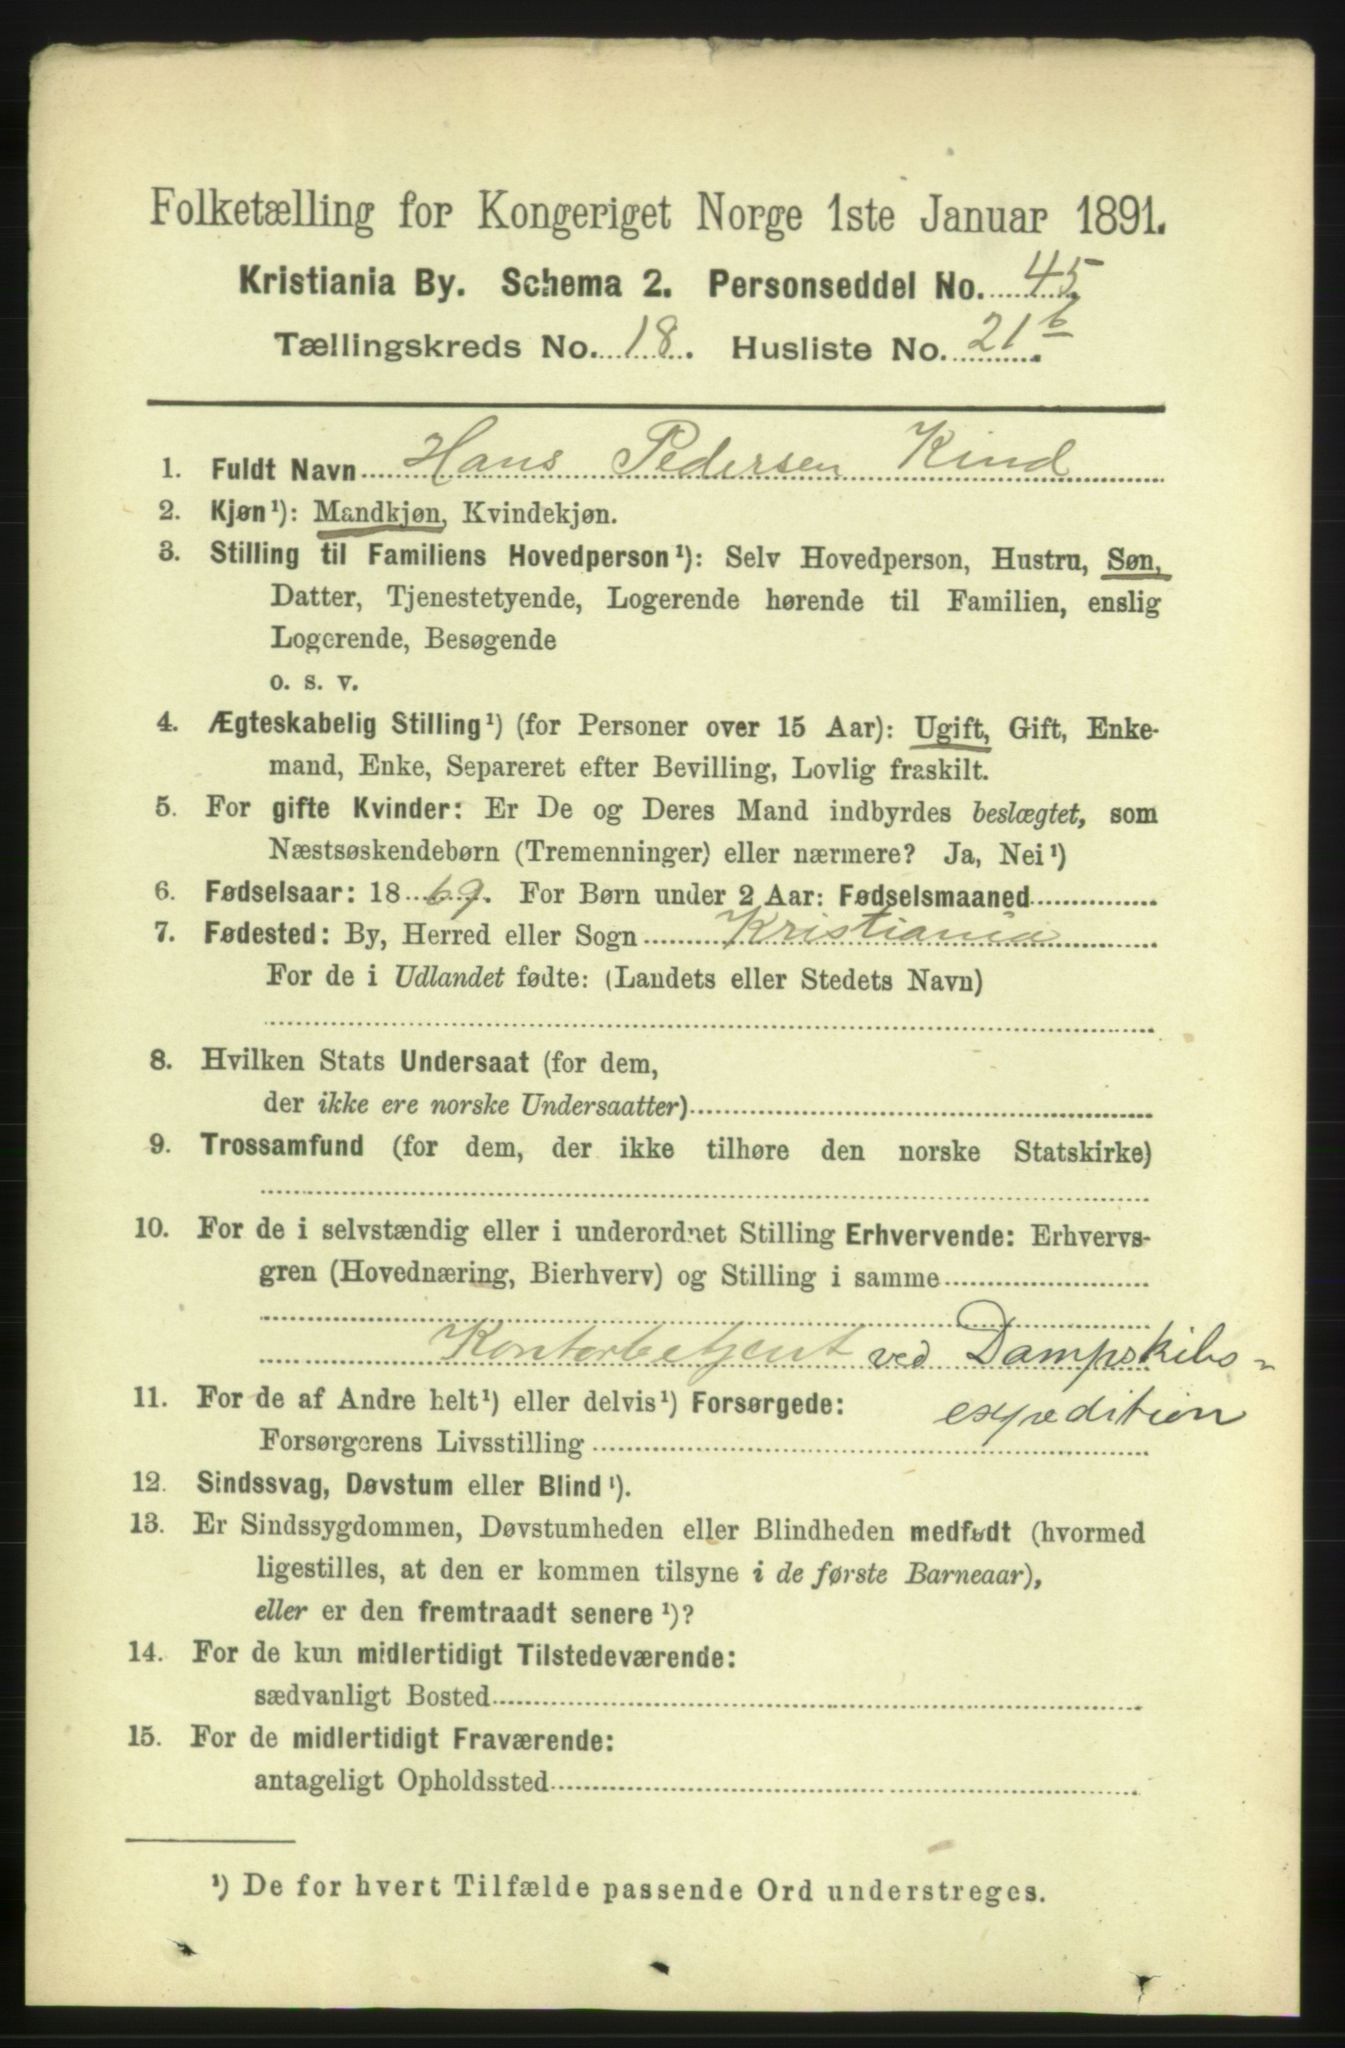 Folketælling for Kongeriget Norge 1ste Januar 1891.
Kristiania By. Schema 2. Personseddel No. 45
Tællingskreds No. 18. Husliste No. 21 b.
1. Fuldt Navn Hans Pedersen Kind
2. Kjøn¹): Mandkjøn, Kvindekjøn.
3. Stilling til Familiens Hovedperson¹): Selv Hovedperson, Hustru, Søn,
Datter, Tjenestetyende, Logerende hørende til Familien, enslig
Logerende, Besøgende
o. s. v.
4. Ægteskabelig Stilling¹) (for Personer over 15 Aar): Ugift, Gift, Enke-
mand, Enke, Separeret efter Bevilling, Lovlig fraskilt.
5. For gifte Kvinder: Er De og Deres Mand indbyrdes beslægtet, som
Næstsøskendebørn (Tremenninger) eller nærmere? Ja, Nei¹)
6. Fødselsaar: 1869. For Børn under 2 Aar: Fødselsmaaned
7. Fødested: By, Herred eller Sogn Kristiania
For de i Udlandet fødte: (Landets eller Stedets Navn)
8. Hvilken Stats Undersaat (for dem,
der ikke ere norske Undersaatter)
9. Trossamfund (for dem, der ikke tilhøre den norske Statskirke)
10. For de i selvstændig eller i underordnet Stilling Erhvervende: Erhvervs-
gren (Hovednæring, Bierhverv) og Stilling i samme
Kontorbetjent ved Dampskibs-
expedition
11. For de af Andre helt¹) eller delvis¹) Forsørgede:
Forsørgerens Livsstilling
12. Sindssvag, Døvstum eller Blind¹).
13. Er Sindssygdommen, Døvstumheden eller Blindheden medfødt (hvormed
ligestilles, at den er kommen tilsyne i de første Barneaar),
eller er den fremtraadt senere¹)?
14. For de kun midlertidigt Tilstedeværende:
sædvanligt Bosted
15. For de midlertidigt Fraværende:
antageligt Opholdssted
¹) De for hvert Tilfælde passende Ord understreges.